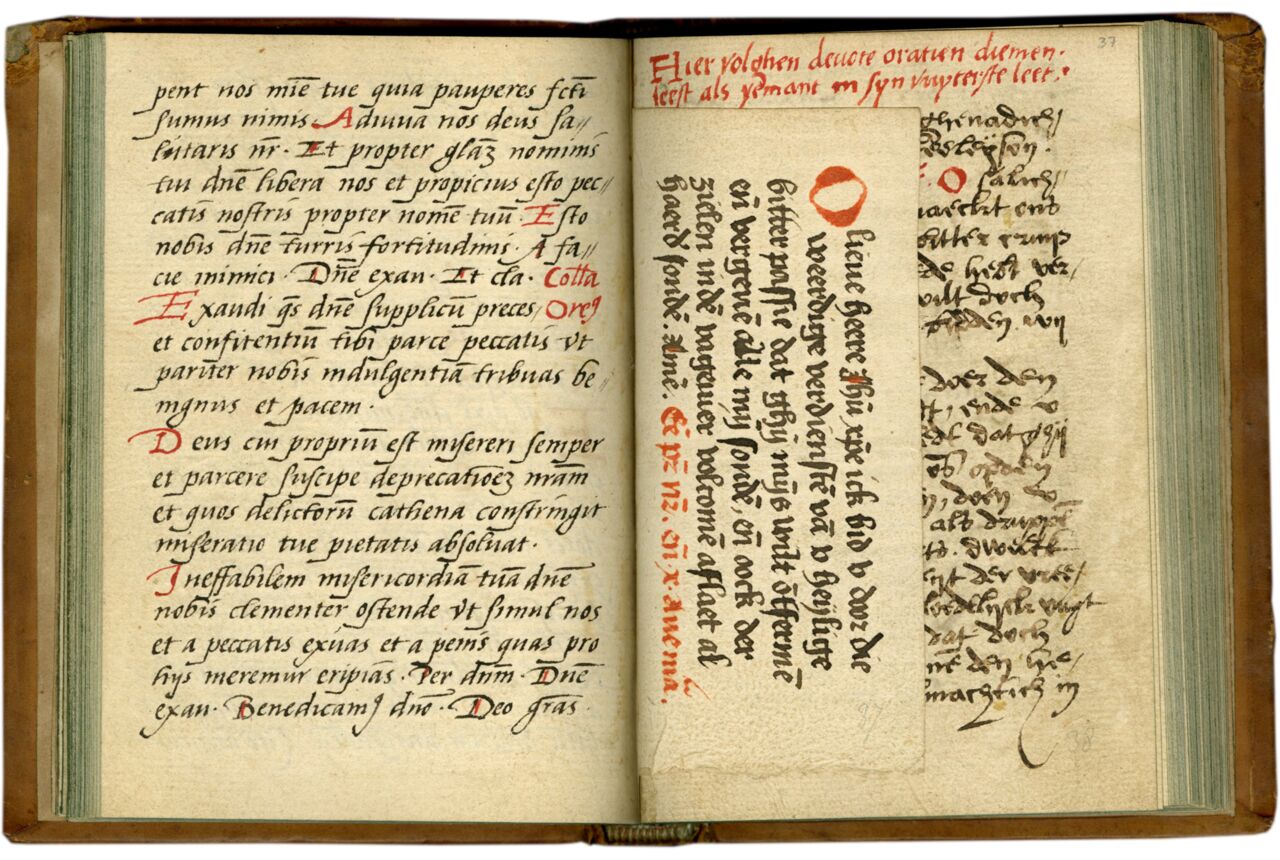 pent nos mīe tue quia pauperes fct̄i
sumus nimis. Adiuua nos deus sa//
lutaris nr̄. Et propter glaʒ nominis
tui dn̄e libera nos et propicius esto pec/
catis nostris propter nomē tuū. Esto
nobis dn̄e turris fortitudinis. A fa//
cie inimici. Dn̄e exau. Et cla. Coll̄a
Exaudi qs̄ dn̄e supplicū preces,
et confitentiū tibi parce peccatis vt
parit̄er nobis indulgentiā tribuas be//
nignus et pacem.
Deus cui propriū est misereri semper
et parcere suscipe deprecatioēʒ nrām
et quos delictorū cathena constringit
miseratio tue pietatis absoluat.
Ineffabilem misericordiā tuā dn̄e
nobis clementer ostende vt simul nos
et a peccatis exuas et a penis quas pro
hijs meremur eripias. Per dnm̄. Dn̄e
exau. Benedicamꝰ dn̄o. Deo grās.
37
Hier volghen deuote oratien diemen.
leest als yemant in syn vuyterste leet.
O lieue heere Jhū xp̄e ick bid v doer die
weerdige verdienstē vā v heylige
bitter passie dat ghij mijs wilt ōtfermē
eñ vergeuē alle mij sondē, eñ oock der
zielen indē vageuer volcomē aflaet al
haerd sondē. Amē. Eē pr̄ nr̄. eñ .x. Aue mā.
ghenadich/
O salich/
naeckt ende
bitter cruys
de hebt ver/
wilt doch
doer den
t, ende v
dat ghij
, doen v
als
der
dat doch
den he/
machtich in
38